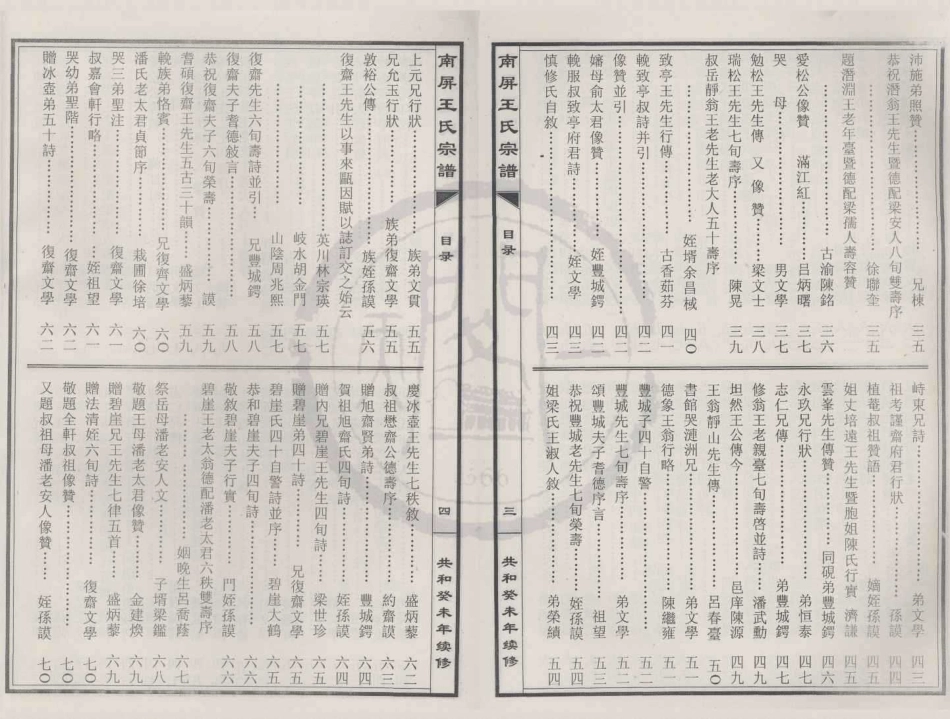 沛施弟照贊 兄棟 三五
恭祝潛翁王先生暨德配梁安人八旬雙壽序
徐聯奎 三五
題潛淵王老年臺暨德配梁孺人壽容贊
古渝陳銘 三六
愛松公像贊 滿江紅 呂炳曙 三七
哭 母 男文學 三七
勉松王先生傳 又像贊 梁文士 三八
瑞松王先生七旬壽序 陳晃 三九
叔岳靜翁王老先生老大人五十壽序
姪壻余昌棫 四〇
致亭王先生行傳 古香茹芬 四一
輓致亭叔詩并引 四二
像贊並引 四二
嬸母俞太君像贊 姪豐城鍔 四二
輓服叔致亭府君詩 姪文學 四三
慎修氏自敘 四三
峙東兄詩 弟文學 四三
祖考謹齋府君行狀 孫謨 四四
植菴叔祖贊語 嫡姪孫謨 四五
姐丈培遠王先生暨胞姐陳氏行實 濟謙 四五
雲峯先生傳贊 同硯弟豐城鍔 四六
永玖兄行狀 弟恒泰 四七
志仁兄傳 弟豐城鍔 四七
修翁王老親臺七旬壽啓並詩 潘武勳 四九
坦然王公傳今 邑庠陳源 四九
王翁靜山先生傳 呂春臺 五〇
書館哭漣洲兄 弟文學 五一
德象王翁行略 陳繼雍 五一
豐城子四十自警 五二
豐城先生七旬壽序 弟文學 五二
頌豐城夫子耆德序言 祖望 五三
恭祝豐城老先生七旬榮壽 姪孫謨 五四
姐梁氏王淑人敘 弟榮績 五四
南屏王氏宗譜
目录
三
共和癸未年续修
南屏王氏宗譜
目录
四
共和癸未年续修
上元兄行狀 族弟文貫 五五
兄允玉行狀 族弟復齋文學 五五
敦裕公傳 族姪孫謨 五六
復齋王先生以事來甌因賦以誌訂交之始云
英川林宗瑛 五七
岐水胡金門 五七
山陰周兆熙 五七
復齋先生六旬壽詩並引 兄豐城鍔 五八
復齋夫子耆德敍言 五八
恭祝復齋夫子六旬榮壽 謨 五九
耆碩復齋王先生五古三十韻 盛炳藜 五九
輓族弟恪賓 兄復齊文學 六〇
潘氏老太君貞節序 栽圃徐培 六〇
哭三弟聖注 復齋文學 六一
叔嘉會軒行略 姪祖望 六一
哭幼弟聖階 復齋文學 六二
贈冰壺弟五十詩 復齋文學 六二
慶冰壺王先生七秩敘 盛炳藜 六二
叔祖懋齋公德壽序 約齋謨 六三
贈旭齋賢弟詩 豐城鍔 六四
賀祖旭齋氏四旬詩 姪孫謨 六四
贈內兄碧崖王先生四旬詩 梁世珍 六五
贈碧崖弟四十詩 兄復齋文學 六五
碧崖氏四十自警詩並序 碧崖大鶴 六五
恭和碧崖夫子四旬詩 六六
敬敘碧崖夫子行實 門姪孫謨 六六
碧崖王老太翁德配潘老太君六秩雙壽序
姻晚生呂喬蔭 六七
祭岳母潘老安人文 子壻梁鑑 六八
敬題王母潘老太君像贊 金建煥 六九
贈碧崖兄王先生七律五首 盛炳藜 六九
贈法清姪六旬詩 復齋文學 七〇
敬題全軒叔祖像贊 七〇
又題叔祖母潘老安人像贊 姪孫謨 七〇